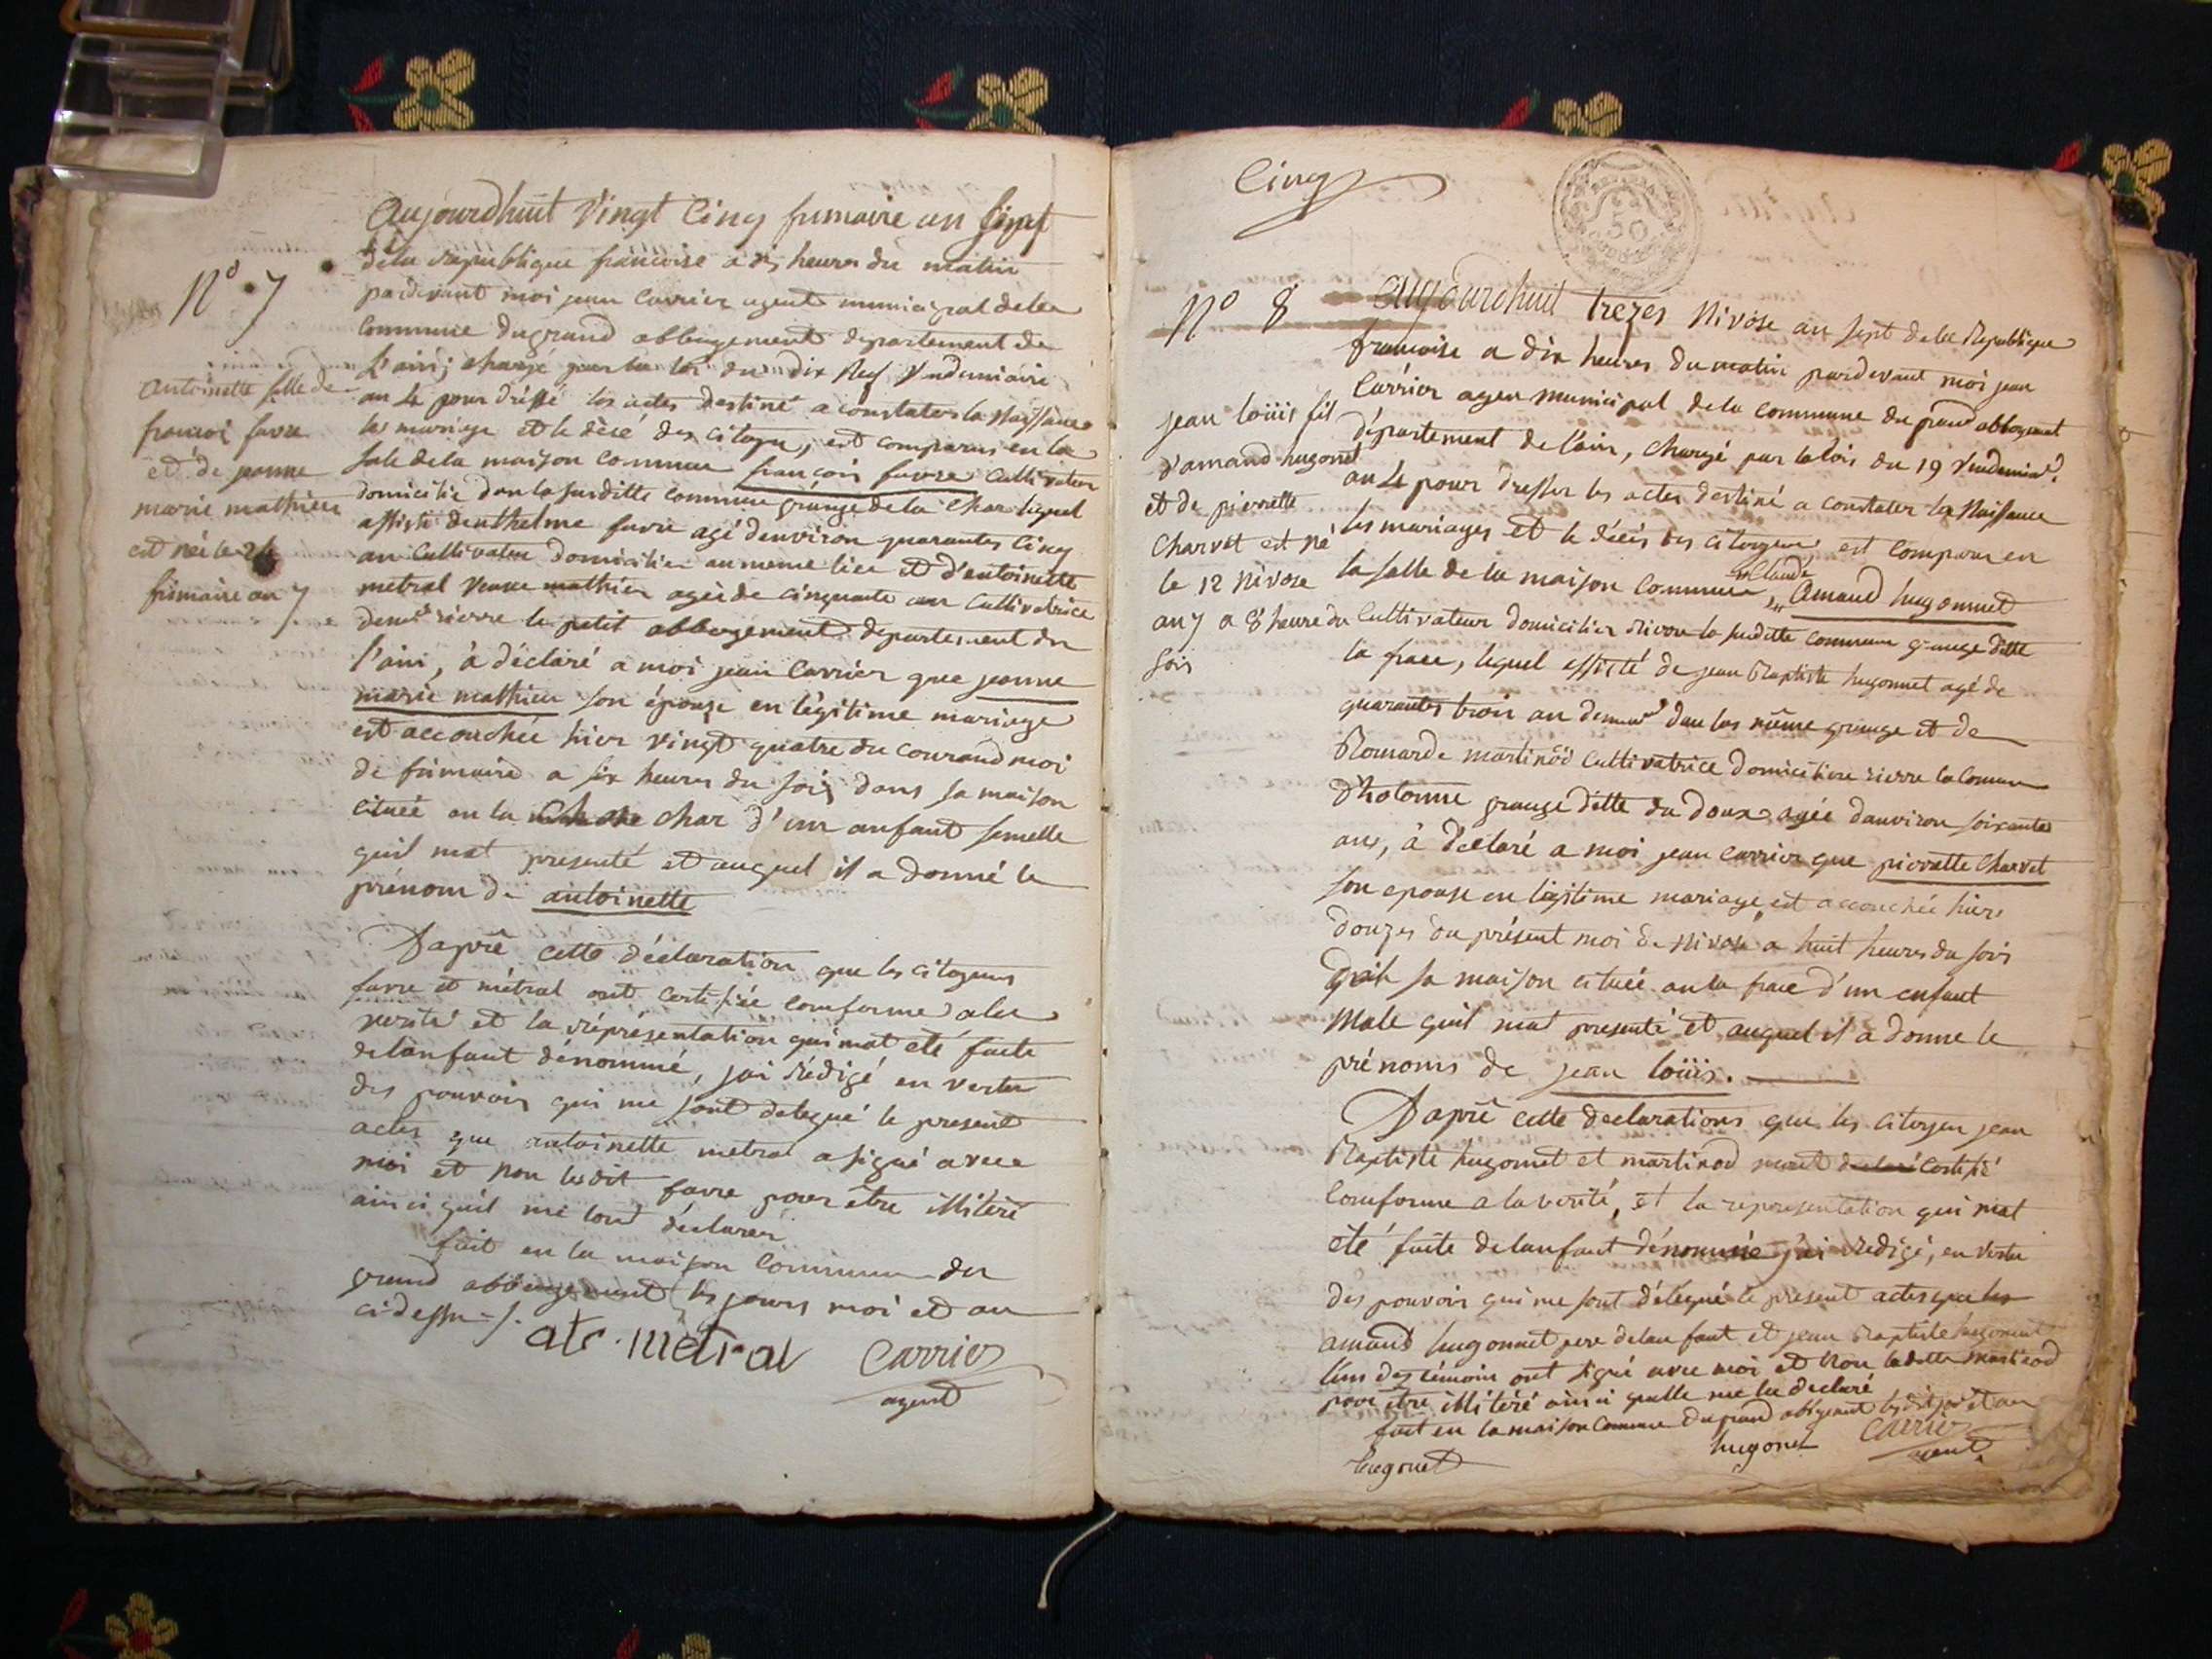 N° 7
antoinette fille de
francoi favre
et de jeanne
marie mathieu
est née le 24
frimaire an 7
aujourdhuit vingt cinq frimaire an sept
dela republique francoise a dix heures du matin
pardevant moi jean carrier agent municipal dela
commune du grand abbergement departement de
l'ain; chargé par la loi du dix neuf vendemiaire
an 4 pour dréssé les actes destiné a constater la naissance
les mariage et le décé des citoyen, est comparus en la
sale dela maison commune francois favre cultivateur
domicilié dans la susditte commune grange de la char lequel
assisté denthelme favre agé denviron quarantes cinq
an cultivateur domicilier au meme lieu et d'antoinette
metral veuve mathieu agée de cinquante an cultivatrice
demt rierre le petit abbergement departement de
l'ain, à déclaré a moi jean carrier que jeanne
marie mathieu son épouse en légitime mariage
est accouchée hier vingt quatre du courand moi
de frimaire a six heures du soir dans sa maison
cituée en la char d'un anfant femelle
quil mat presenté et auquel il a donné le
prénom de antoinette
Daprê cette déclaration que les citoyens
favre et métral ont certifiée comforme a la
verité et la réprésentation qui mat eté faite
delanfant dénommé, jai rédigé en vertu
des pouvoir qui me sont delegué le present
actes que antoinette metral a signé avec
moi et non ledit favre pour être illitéré
ainsi quil me lond déclarér
fait en la maison commune du
grand abbergement les jours moi et an
cidessu
ate. metral carrier
agent
Cinq
50
N° 8
jean loüis fils
d'amand hugonnet
et de pierrette
charvet est né
le 12 nivose
an 7 a 8 heure du
soir
aujourdhuit trezes nivose an sept dela republique
francoise a dix heures du matin pardevant moi jean
carrier agen municipal dela commune du grand abbergement
département de l'ain, chargé par la lois du 19 vendemiaire
an 4 pour dresser les actes destiné a constater la naissance
les mariages et le décés des citoyens est comparu en
la salle de la maison commune, claude amand hugonnet
cultivateur domicilier rierre la susditte commune grange ditte
la frace, lequel assisté de jean baptiste hugonnet agé de
quarantes trois an demeurt dans las même grange et de
bernarde martinod cultivatrice domiciliere rierre la commune
d'hotonne grange ditte du doux agée danviron soixantes
ans, à déclaré a moi jean carrier que pierrette charvet
son epouse en légitime mariage est accouchée hiers
douzes du présent moi de nivose a huit heures du soir
dans sa maison cituée en la frace d'un enfant
male quil mat presenté et auquel il a donne le
prénoms de jean loüis.
Daprê cette declarations que les citoyen jean
baptiste hugonnet et martinod mont declaré certifié
comforme a la verité, et la representation qui mat
eté faite delanfant dénommé j'ai redigé, en vertu
des pouvoir qui me sont délégué le present actes que les
amand hugonnet pere delanfant et jean baptiste hugonnet
l'un des témoin ont signé avec moi et non ladette martinod
pour être illitéré ainsi quelle me la declaré
fait en la maison commune du grand abbergement les dit jour et an
hugonet hugonet carrier
agent